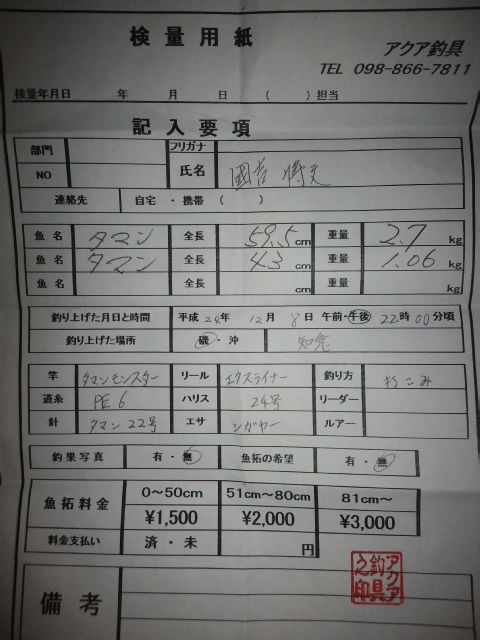 検量用紙
アクア釣具
TEL 098-866-7811
検量年月日 年 月 日 ( ) 担当
記入要項
部門 NO フリガナ 氏名
連絡先 自宅・携帯 ( )
魚名 タマン 全長 59.5cm 重量 2.7kg
魚名 タマン 全長 43cm 重量 1.06kg
釣り上げた月日と時間 平成24年12月8日 午前・午後 22時00分頃
釣り上げた場所 磯・沖 知念
竿 タマンモンスター リール 釣り方 打ちこみ
道糸 PE6 ハリス 24号 リーダー
針 タマン22号 エサ シガヤー ルアー
釣果写真 有・無 魚拓の希望 有・無
魚拓料金 0~50cm 51cm~80cm 81cm~
¥1,500 ¥2,000 ¥3,000
料金支払い 済・未 円
備考